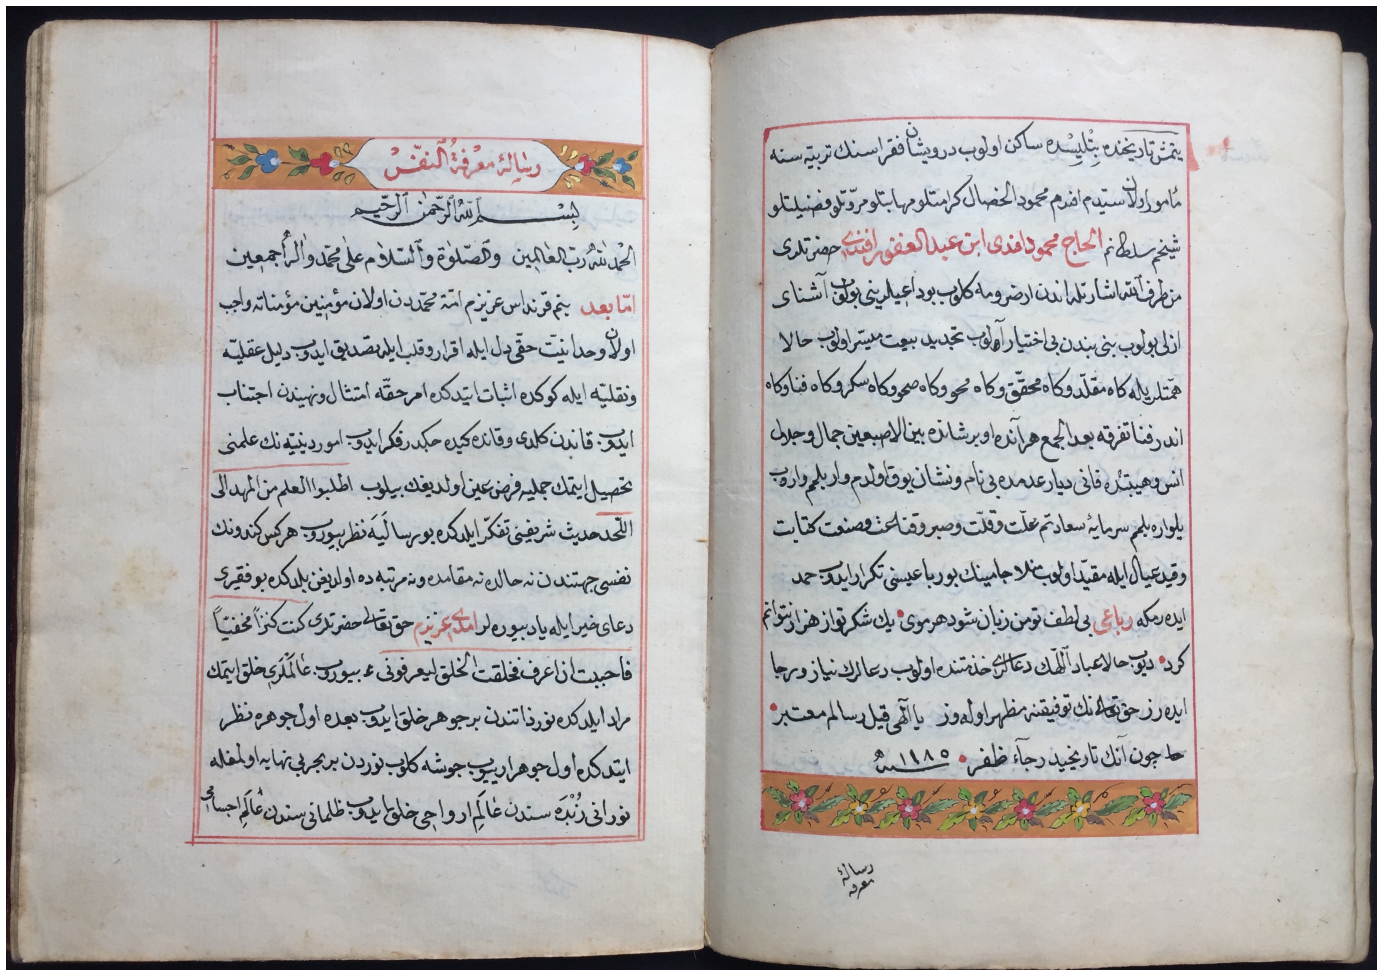 يتمش تاريخنده بتليسده ساكن اولوب درويشان فقراسنك تربيه سنه
مأمور اولان سيدم افندم محمود الخصال كرامتلو مهابتلو مروتلو فضيلتلو
شيخم سلطانم الحاج محمود افندى ابن عبد الغفور افندى حضرتلرى
من طرف الله اشارتله اندن ارضرومه كلوب بو داعيلرينى بولوب آشناى
ازلى بولوب بنى بندن بى اختيار آلوب تجديد بيعت ميسر اولوب حالا
همتلريله كاه مقلد وكاه محقق وكاه محو وكاه صحو وكاه سكر وكاه فنا وكاه
اندر فنا تفرقه بعد الجمع هر آنده او بر شانده بين الاصبعين جمال وجلال
انس وهيبتده فانى ديار عدمده بى نام ونشان يوق اولدم وار بلم واروب
يلواره بلم سرمايۀ سعادتم علت وقلت وصبر وقناعت وصنعت كتابت
وقيد عيال ايله مقيد اولوب منلا جامينك بو رباعيسنى تكرار ايدوب حمد
ايده رمكه رباعى بى لطف تو من زبان شود هر موى يك شكر تو از هزار نتوانم
كرد ديوب حالا عباد اللهك دعالرى خدمتنده اولوب دعالرك نياز ورجا
ايده رز حق تعالى نك توفيقنه مظهر اوله وز يا الهى قيل رسالم معتبر
چون آنك تاريخيدر جاء ظفر سنه ١١٨٥
رسالۀ
معرفة
رسالۀ معرفة النفس
بسم الله الرحمن الرحيم
الحمد لله رب العالمين والصلوة والسلام على محمد واله اجمعين
اما بعد بنم قرنداس عزيزم امة محمددن اولان مؤمنين مؤمناته واجب
اولان وحدانيت حقى دل ايله اقرار وقلب ايله تصديق ايدوب دليل عقليه
ونقليه ايله كوكده اثبات ايتدكده امر حقه امتثال ونهيندن اجتناب
ايدوب قاندن كلدى وقانده كيده جكدر فكر ايدوب امور دينيه نك علمنى
تحصيل ايتمك جمليه فرض عين اولديغك بيلوب اطلبوا العلم من المهد الى
اللحد حديث شريفنى تفكر ايلدكده بو رساليه نظر بيوروب هركس كندونك
نفسى جهتندن نه حالده نه مقامده ونه مرتبه ده اولديغن بلدكده بو فقيرى
دعاى خير ايله ياد بيوره لر امدى عزيزم حق تعالى حضرتلرى كنت كنزاً مخفتياً
فاحببت ان اعرف فخلقت الخلق ليعرفونى بيوروب عالملرى خلق ايتمك
مراد ايلدكده نور ذاتندن بر جوهر خلق ايدوب بعده اول جوهره نظر
ايتدكده اول جوهر اريیوب جوشه كلوب نوردن بر بحر بى نهايه اولمغله
نورانى زبده سندن عالم ارواحى خلق ايدوب ظلمانى سندن عالم اجسامى